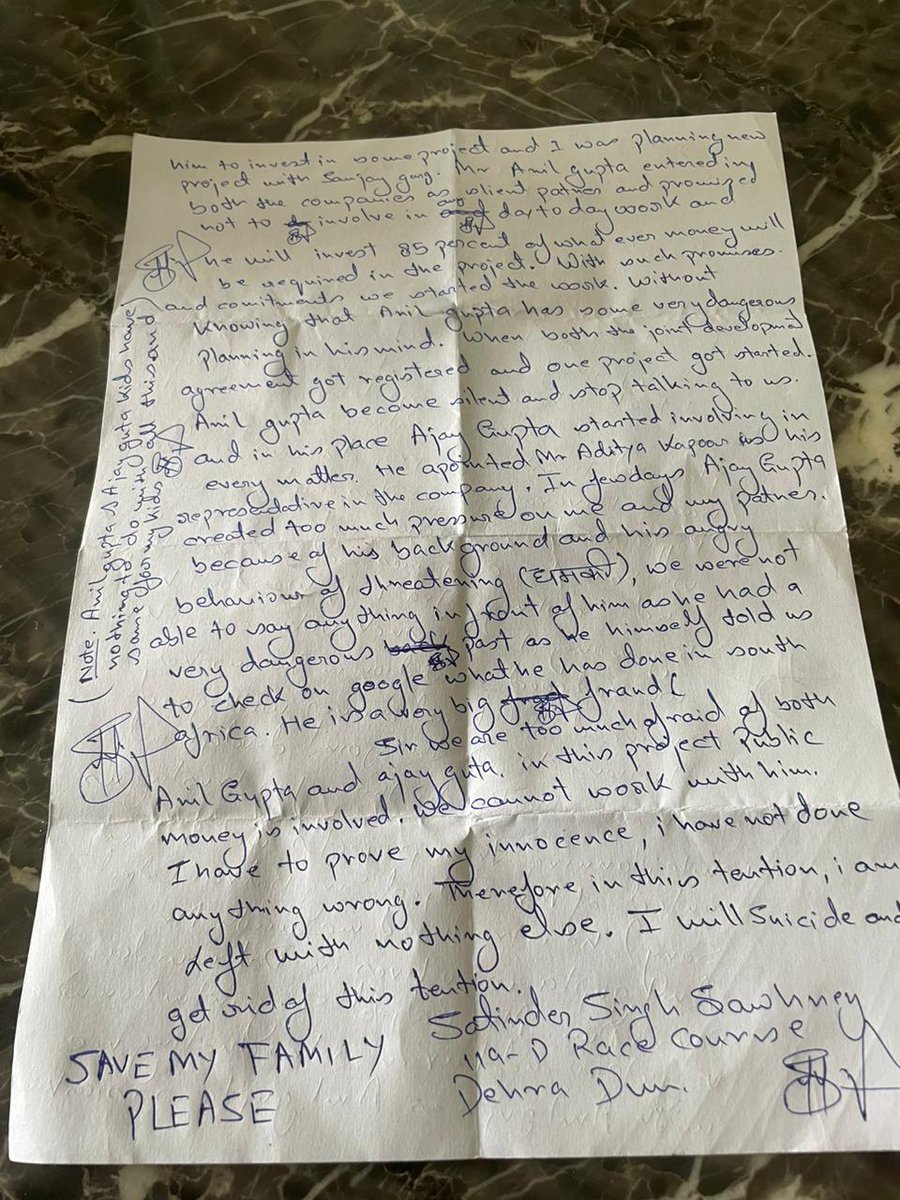 him to invest in some project and I was planning new
project with Sanjay garg. Mr Anil gupta entered in
both the companies as slient patner and promised
not to involve in day to day work and
he will invest 85 percent of what ever money will
be required in the project. With such promises
and comitments we started the work. Without
Knowing that Anil gupta has some very dangerous
planning in his mind. When both the joint development
agreement got registered and one project got started.
Anil gupta become silent and stop talking to us.
and in his place Ajay Gupta started involving in
every matter. He apointed Mr Aditya Kapoor as his
representative in the company. In few days Ajay Gupta
created too much pressure on me and my patner.
because of his background and his angry
behaviour of threatening (धमकी), we were not
able to say anything in front of him as he had a
very dangerous past as he himself told us
to check on google what he has done in south
africa. He is a very big fraud (
Sir we are too much afraid of both
Anil Gupta and ajay guta. in this project Public
money is involved. We cannot work with him.
I have to prove my innocence, i have not done
anything wrong. Therefore in this tention, i am
left with nothing else. I will suicide and
get rid of this tention.
Satinder Singh Sawhney
119-D Race Course
Dehra Dun.
SAVE MY FAMILY
PLEASE
(Note. Anil gupta & Ajay gupta kids have
nothing to do with all this and
same for my kids)